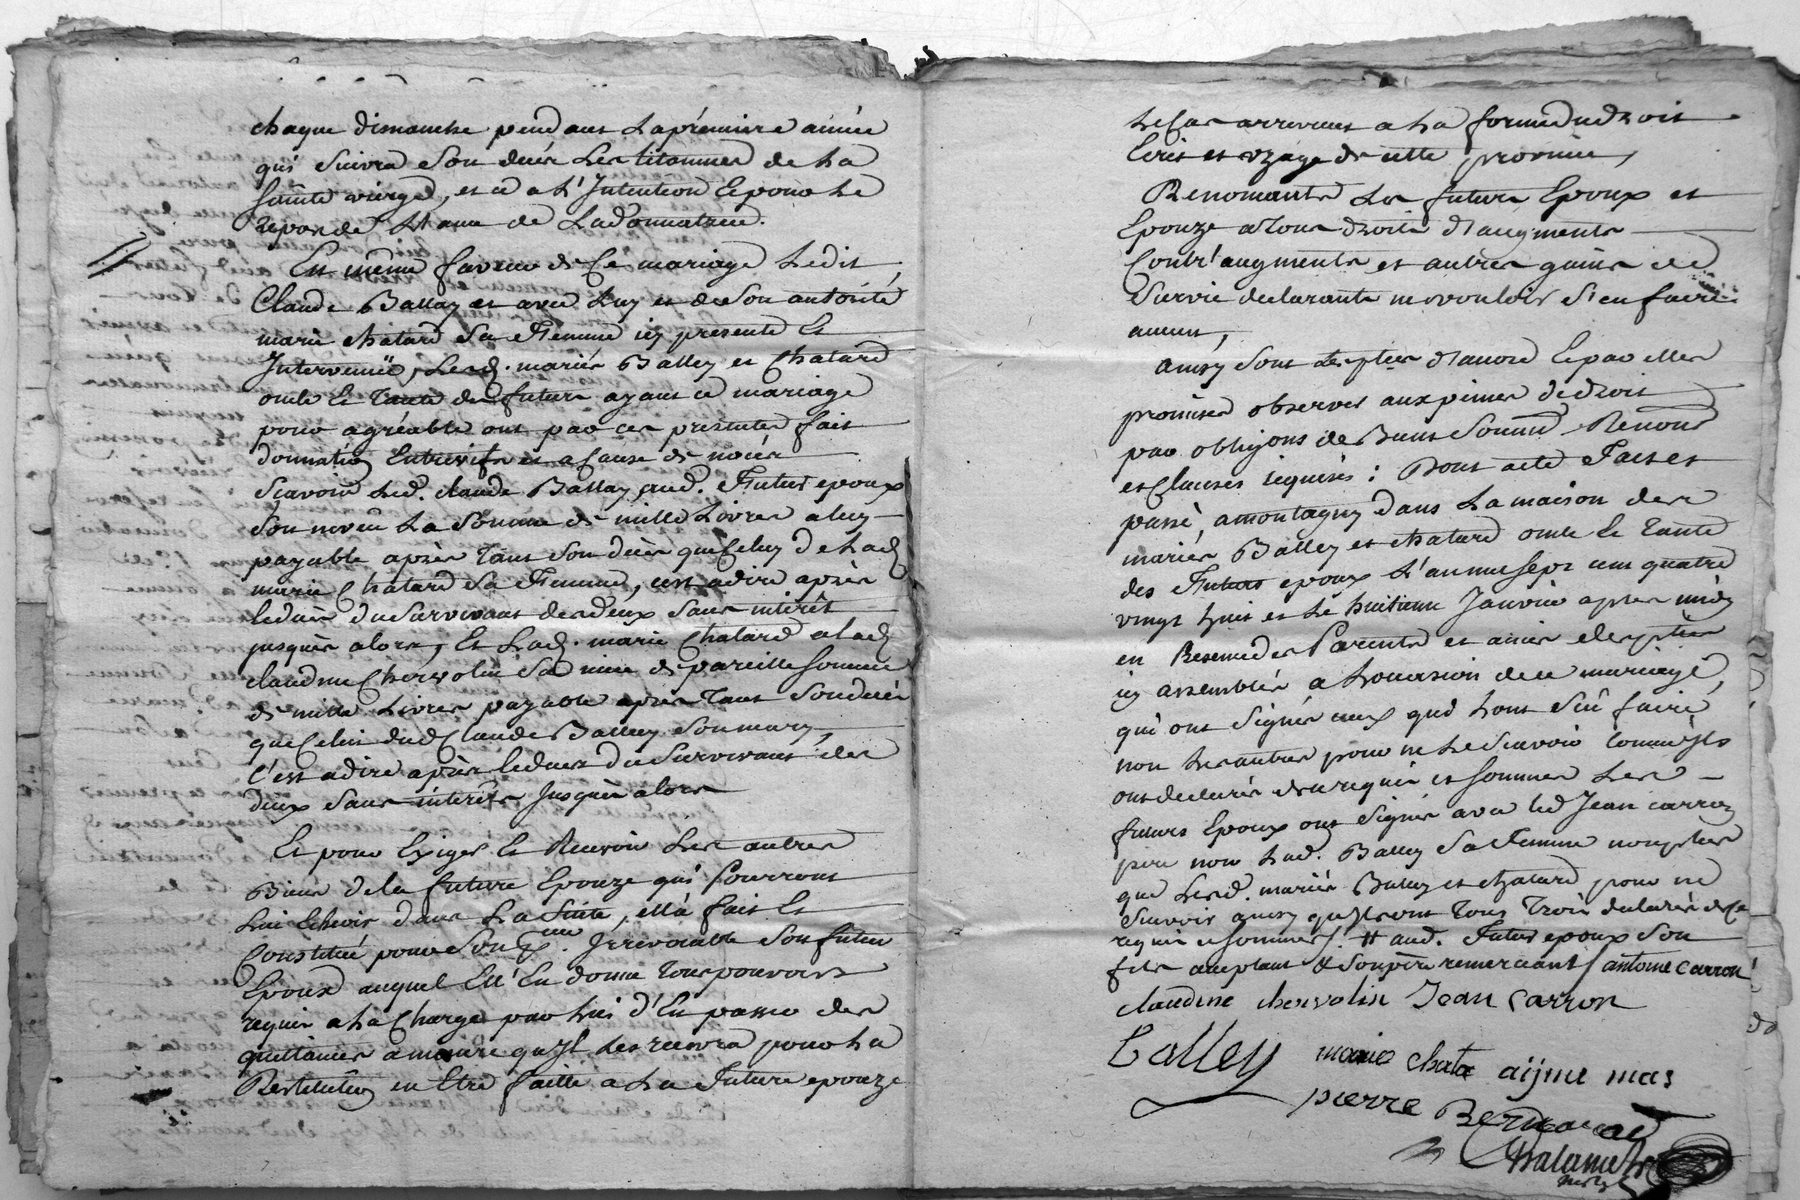 chaque dimanche pendant la première année
qui suivra son decés les litannies de la
sainte vierge, et ce a l'Intention Et pour le
repos de l'ame de Ladonnatrice.
En même faveur de Ce mariage Ledit
Claude Balley et avec Luy et de son autorité
marie chatard sa Femme icy presente Et
Intervenüe, Lesd. mariés Balley et Chatard
oncle Et Tante des futurs ayant ce mariage
pour agréable ont par ces presentes fait
donnation Entrevifs et a Cause de noces
Scavoir Led. claude Ballay aud. Futur epoux
son neveu La somme de mille Livres a luy
payable après Tant son décès que Celuy de Lad.
marie Chatard sa Femme, c'est adire après
le décès du Survivant des deux sans intérêt
jusques alors, Et Lad. marie Chatard a lad.
claudine Chervolin sa niece de pareille somme
de mille Livres payable après Tant son décés
que Celui dud. Claude Balley son mary,
C'est adire après le déces du Survivant des
deux sans intérêts jusques alors
Et pour Exiger Et Recevoir Les autres
Biens de la future Epouze qui Pourront
Lui Echeoir dans La Suite, ella fait Et
Constitué pour son irrévocable Son futur
Epoux auquel En donne Tous pouvoirs
requis a la Charge par lui d'En passer des
quittances a mesure qu'Il les recevra pour La
Restitution en Etre faitte a La Future epouze
Le Cas arrivant a La forme du droit
Ecrit et uzage de cette province,
Renonçants Les futurs Epoux et
Epouze a Tous droits d'augments
Contr'augments et autres gains de
Survie declarants ne vouloir s'en faire
aucun,
ainsy sont les pties d'accord Et par elles
promises observer aux peines de droit
par obligons de Biens Soumd. Renond.
et Clauses requises: Dont acte Fait et
passé, a montagny dans La maison des
mariés Balley et chatard oncle Et Tante
des Futurs epoux L'an mil sept cent quatre
vingt huit et Le huitieme Janvier après midy
en Presence des Parents et amies des pties
icy assemblés a L'occasion de ce mariage,
qui ont signés ceux qud l'ont Sçû faire
non les autres pour ne Le Scavoir Comme Ils
ont declarés de ce requis et sommes Les
futurs Epoux ont signés avec led Jean carron
pere non Lad. Balley sa Femme non plus
que Lesd. mariés Balley et chatard pour ne
Scavoir ainsy qu'Ils ont Tous Trois declarés de Ce
requis et sommes /. # aud. Futur epoux son
fils acceptant & son père remerciant / antoine Carron
claudine chervolin Jean Carron
Balley marie chata aijme mas
pierre Bernard
Chalamel